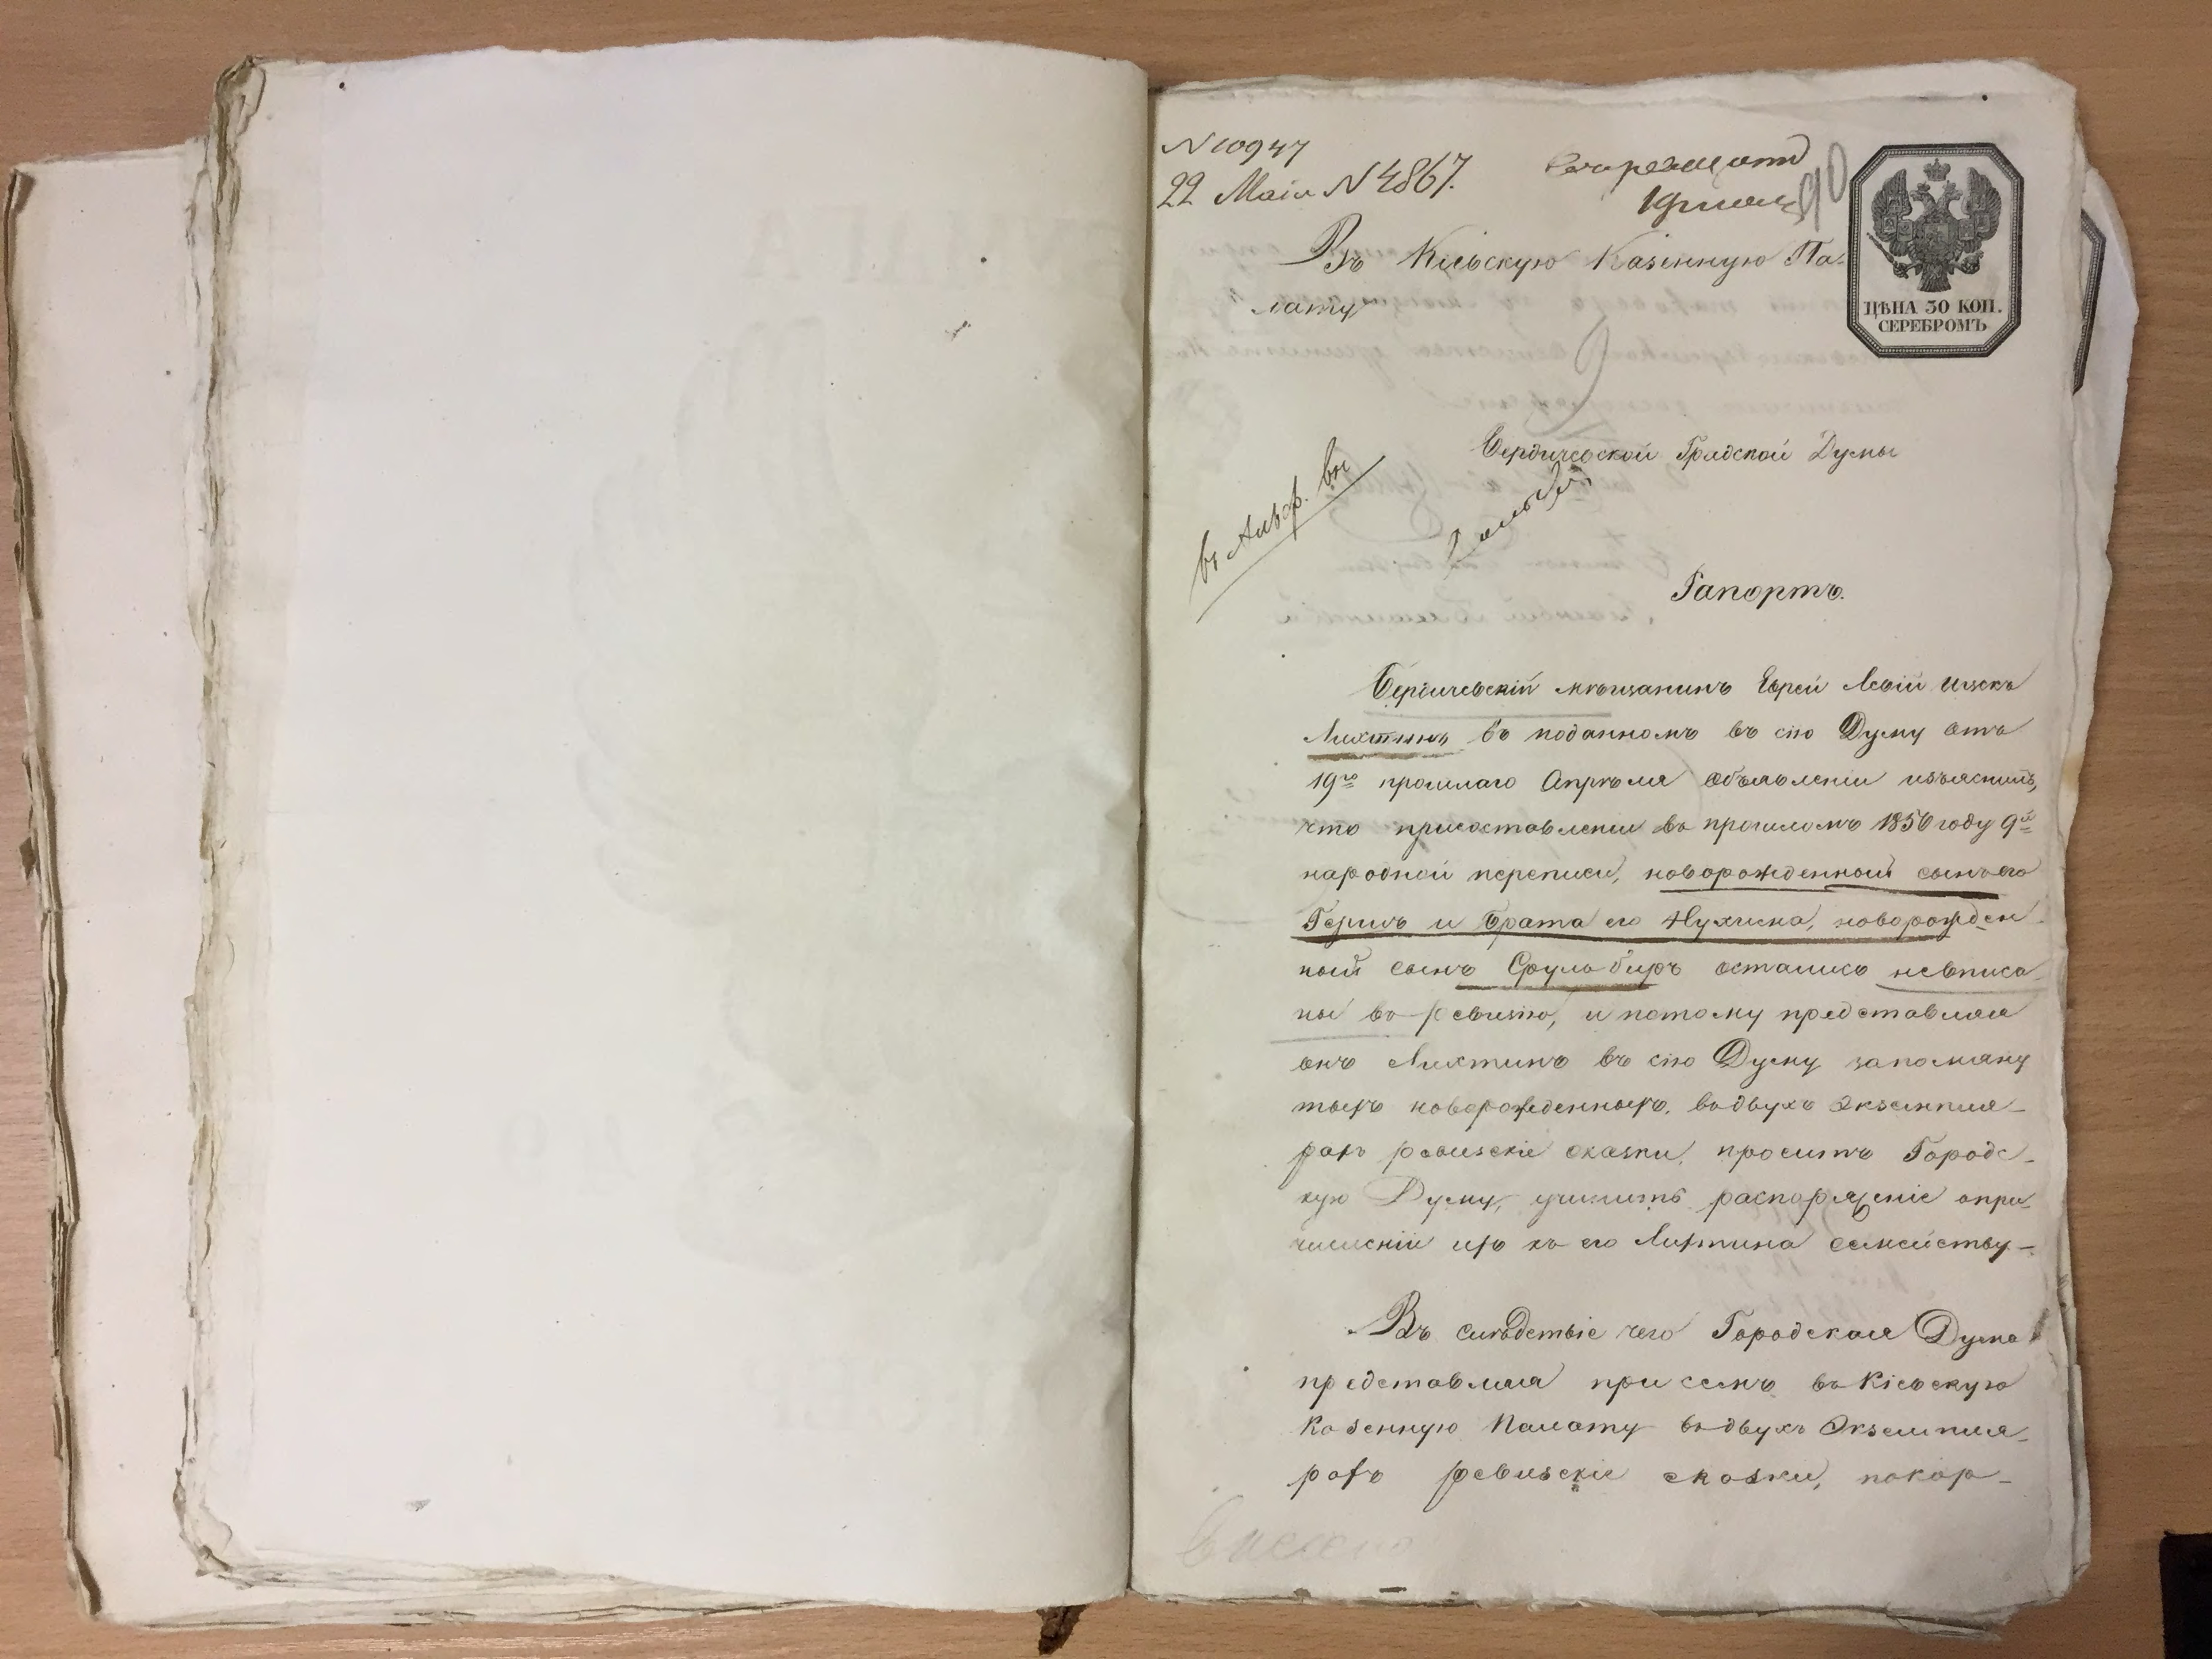 N 10947
22 Маія N 4867.
Въ Кіевскую Казенную Па-
лату
ЦѢНА 30 КОП.
СЕРЕБРОМЪ
Бердичевской Градской Думы
въ Алфф. вн
Рапортъ.
Бердичевскій мѣщанинъ Еврей Левій Ицекъ
Лихтинъ въ поданномъ въ сію Думу отъ
19го прошлаго Апрѣля объявленіи изъяснилъ,
что присоставленіи въ прошломъ 1850 году 9й
народной переписи, новорожденный сынъ его
Гершъ и брата его Нухима, новорожден
ный сынъ Срульберъ остались невписа
ны въ ревизію, и потому представляя
онъ Лихтинъ въ сію Думу запомяну
тыхъ новорожденныхъ, въдвухъ экземпля-
рахъ ревизскіе сказки, проситъ Городс-
кую Думу, учинить распоряженіе опри
численіи ихъ къ его Лихтина семейству-
Въ слѣдствіе чего Городская Дума
представляя при семъ въ Кіевскую
Казенную Палату въдвухъ Экземпля-
рахъ ревизскіе сказки, покор-